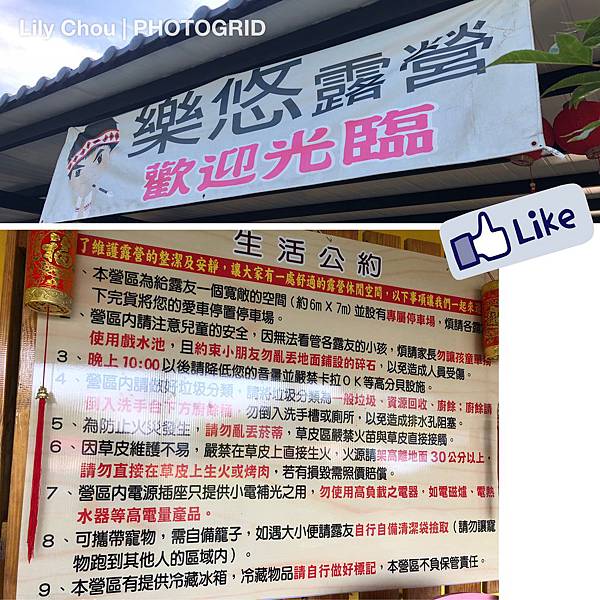 Lily Chou | PHOTOGRID
樂悠露營
歡迎光臨
Like
生活公約
了維護露營的整潔及安靜，讓大家有一處舒適的露營休閒空間，以下事項讓我們一起來
、本營區為給露友一個寬敞的空間（約6m X 7m）並設有專屬停車場，煩請各露
下完貨將您的愛車停置停車場。
、營區內請注意兒童的安全，因無法看管各露友的小孩，煩請家長勿讓孩童單獨
使用戲水池，且約束小朋友勿亂丟地面鋪設的碎石，以免造成人員受傷。
3、晚上10:00以後請降低您的音量並嚴禁卡拉OK等高分貝設施。
4、營區內請做好垃圾分類，請將垃圾分類為一般垃圾、資源回收、廚餘；廚餘請
倒入洗手台下方廚餘桶，勿倒入洗手槽或廁所，以免造成排水孔阻塞。
5、為防止火災發生，請勿亂丟菸蒂，草皮區嚴禁火苗與草皮直接接觸。
6、因草皮維護不易，嚴禁在草皮上直接生火，火源請架高離地面30公分以上，
請勿直接在草皮上生火或烤肉，若有損毀需照價賠償。
7、營區內電源插座只提供小電補光之用，勿使用高負載之電器，如電磁爐、電熱
水器等高電量產品。
8、可攜帶寵物，需自備籠子，如遇大小便請露友自行自備清潔袋撿取（請勿讓寵
物跑到其他人的區域內）。
9、本營區有提供冷藏冰箱，冷藏物品請自行做好標記，本營區不負保管責任。